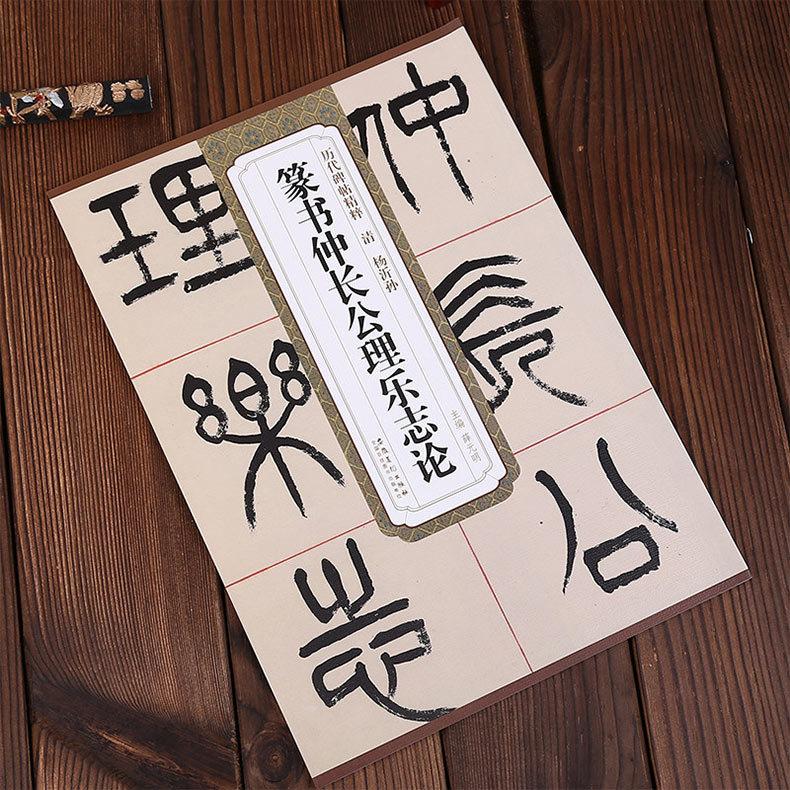 仲長公
理樂志
历代碑帖精粹 清 杨沂孙
篆书仲长公理乐志论
主编 薛元明